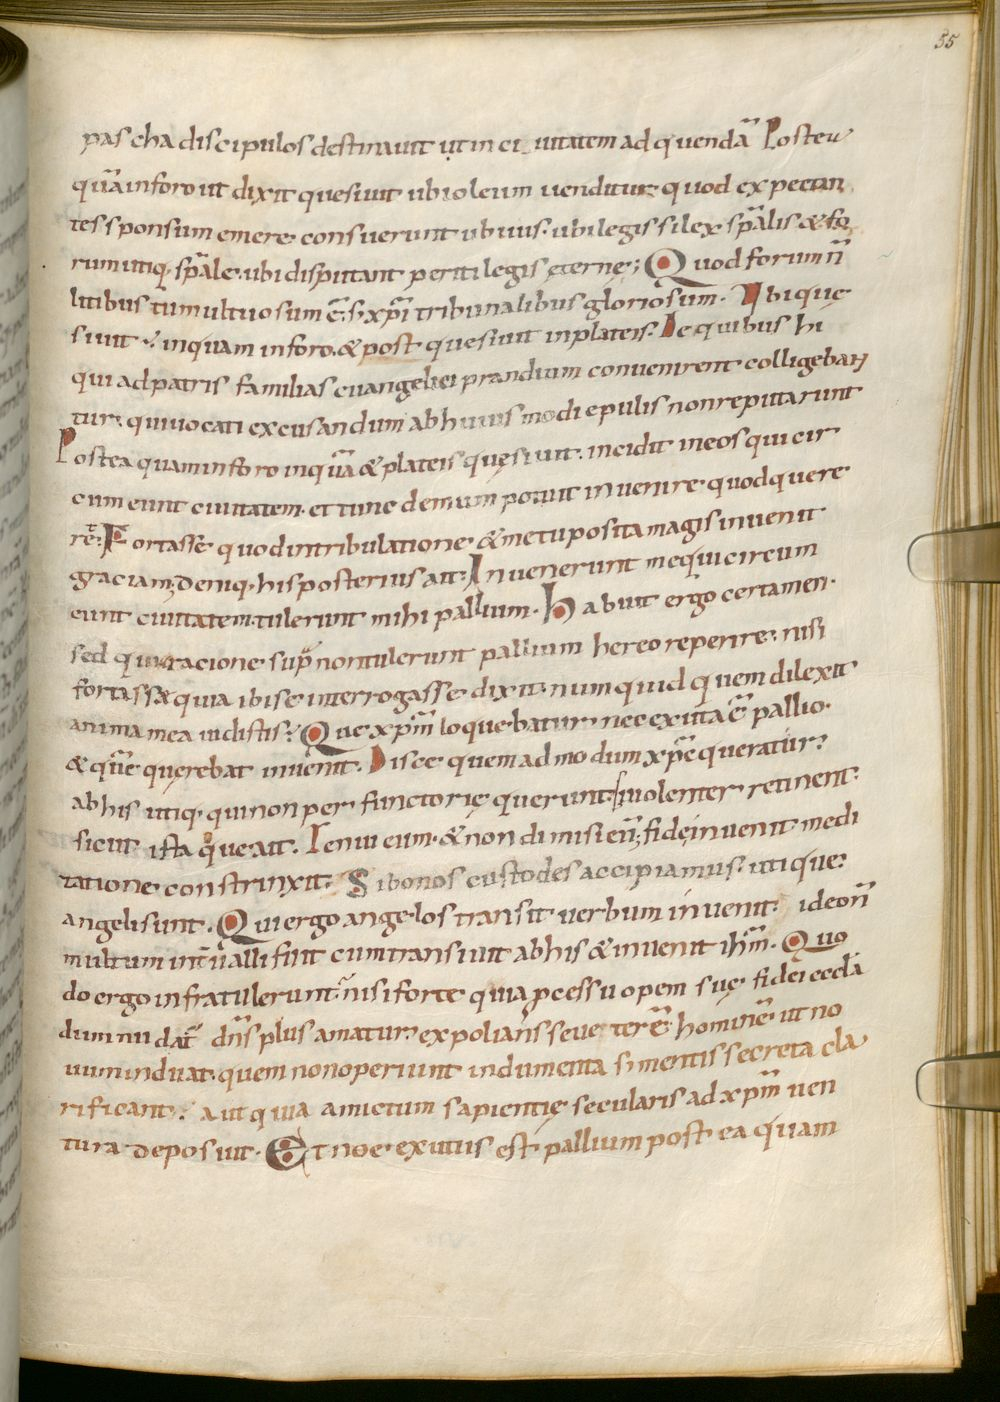 55
pascha discipulos destinavit ut in ci vitatem ad quendā Postea
quā in foro ut dixit quesivit ubi oleum venditur quod expectan
tes sponsum emere consuerunt ubi ius. ubi legis silex spālis & fo
rum utiq; spāle. ubi disputant periti legis ęternę; Quod forum ñ
litibus tumultuosum ē. s; xpī tribunalibus gloriosum. Ubi que
sivit. inquam in foro. & post quesivit in plateis. De quibus hi
qui ad patris familias evangelici prandium convenirent colligeban
tur. qui vocati excusandum ab huius modi epulis non reputarunt
Postea quam in foro inquā & plateis quęsivit. incidit in eos qui cir
cumeunt civitatem. et tunc demum potuit invenire quod quere
ret. Fortasse quod in tribulatione & metu posita magis invenit
graciam. deniq; his posterius ait. Invenerunt me qui circum
eunt civitatem. tulerunt mihi pallium. Habuit ergo certamen.
sed qui racione sup̄ non tulerunt pallium hereo reperire. nisi
fortassæ quia ibi se interrogasse dixit. num quid quem dilexit
anima mea vidistis? Que xpm̄ loquebatur nec exuta ē pallio.
& quē querebat invenit. Disce quem ad modum xpc̄ queratur?
ab his utiq; qui non perfunctorię querunt sí violenter retinent.
sicut ista que ait. Tenui eum. & non dimisi eū; fide invenit medi
tatione constrinxit. Si bonos custodes accipiamus. utique
angeli sunt. Qui ergo angelos transit verbum invenit. ideo ñ
multum int̄valli fuit cum transivit ab his & invenit ihm̄. Quo
do ergo infra tulerunt. nisi forte quia pcessu opem suę fidei ecclā
dum nudat̄ dn̄s plus amatur. expolians se vet erē hominē ut no
vum induat. quem non operiunt indumenta s; mentis secreta cla
rificant. aut quia amictum sapientię secularis ad xpm̄ ven
tura deposuit. Et noe exutus est pallium post ea quam